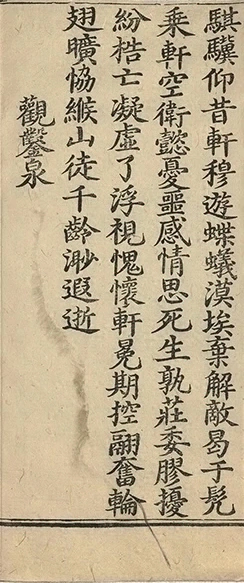 騏驥仰昔軒穆遊蝶蟻漠埃棄解敵曷于髡
乘軒空衛懿憂噩感情思死生孰莊委膠擾
紛梏亡凝虛了浮視愧懷軒冕期控翮奮輪
翅曠恊緱山徒千齡渺遐逝
觀鑿泉